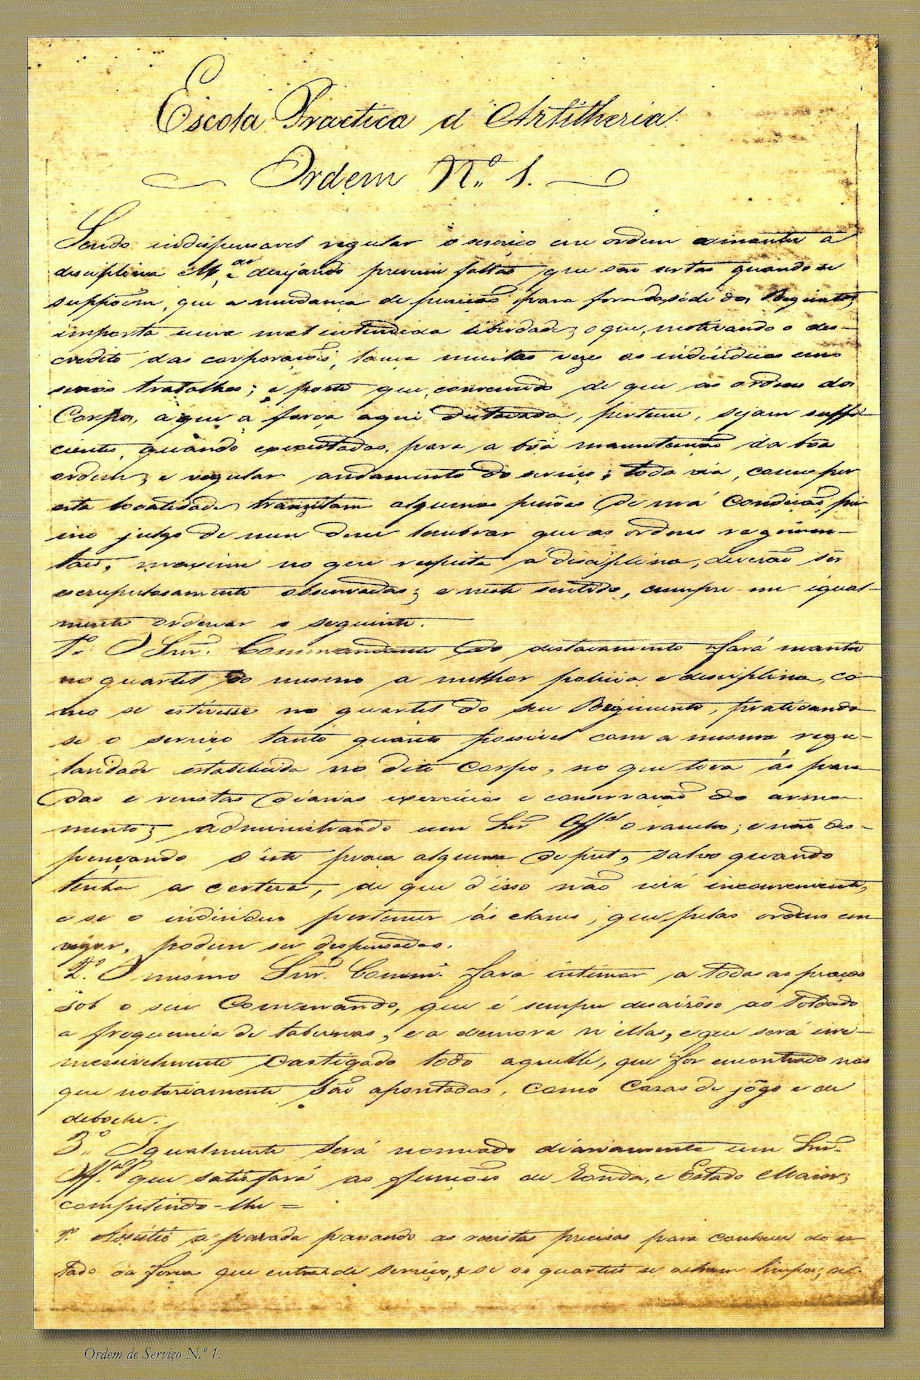 Escola Practica d'Artilheria
Ordem N.º 1.
Sendo indispensavel regular o serviço em ordem a manter a
disciplina e desejando prevenir faltas que são certas quando se
suppõem, que a mudança de posição para fora da séde dos Regimtos
importa uma mal entendida liberdade, o que, motivando o des-
credito das corporações, traz muitas vezes os individuos em
serios trabalhos; e posto que convencido de que as ordens dos
Corpos, a que a força aqui destacada, pertence, sejam suffi-
cientes, quando executadas, para a bôa manutenção da bôa
ordem, e regular andamento do serviço; toda via, como por
esta localidade transitam algumas pessôas de má condição, pri-
eiro julgo de meu dever lembrar que as ordens regimen-
taes, maxime no que respeita a disciplina, deverão ser
escrupulosamente observadas; e neste sentido, cumpre-me igual-
mente ordenar o seguinte.
1.º O Snr. Commandante do destacamento fará manter
no quartel do mesmo a melhor policia e disciplina, co-
mo se estivesse no quartel do seu Regimento, praticando-
se o serviço tanto quanto possivel com a mesma regu-
laridade estabelecida no dito corpo, no que toca ás para-
das e revistas diarias exercicios e conservação do arma-
mento; administrando um Snr. Offal o rancho; e não dis-
pensando d'este praça alguma de pret, salvo quando
tenha a certeza, de que d'isso não virá inconveniente,
e se o individuo pertencer ás classes, que, pelas ordens em
vigor, podem ser dispensadas.
2.º O mesmo Snr. Comme. fara intimar a todas as praças
sob o seu Commando, que é sempre desairôso ao Soldado
a frequencia de tabernas, e a demora n'ellas, e que será im-
mensivelmente castigado todo aquelle, que for encontrado nas
que notoriamente são apontadas, como casas de jôgo e de
deboche.
3.º Igualmente será nomeado diariamente um Snr.
Offal que satisfará as funções de Ronda, e Estado Maior,
competindo-lhe =
1.º Assistir a parada passando as revistas precisas para conhecer do es-
tado da força que entrar de serviço, e se os quarteis se acham limpos;
Ordem de Serviço N.º 1.